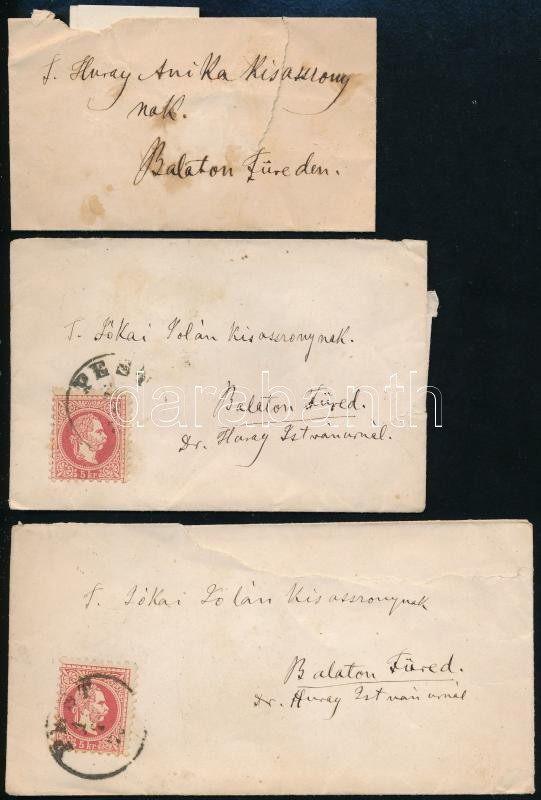 T. Huray Anika Kisasszony
nak.
Balaton Füreden.
T. Jókai Jolán Kisasszonynak.
PEST
Balaton Füred.
Dr. Huray Istvánurnál.
5 kr
darabanth
T. Jókai Jolán Kisasszonynak
Balaton Füred.
Dr. Huray Istvánurnál
PEST
5 kr